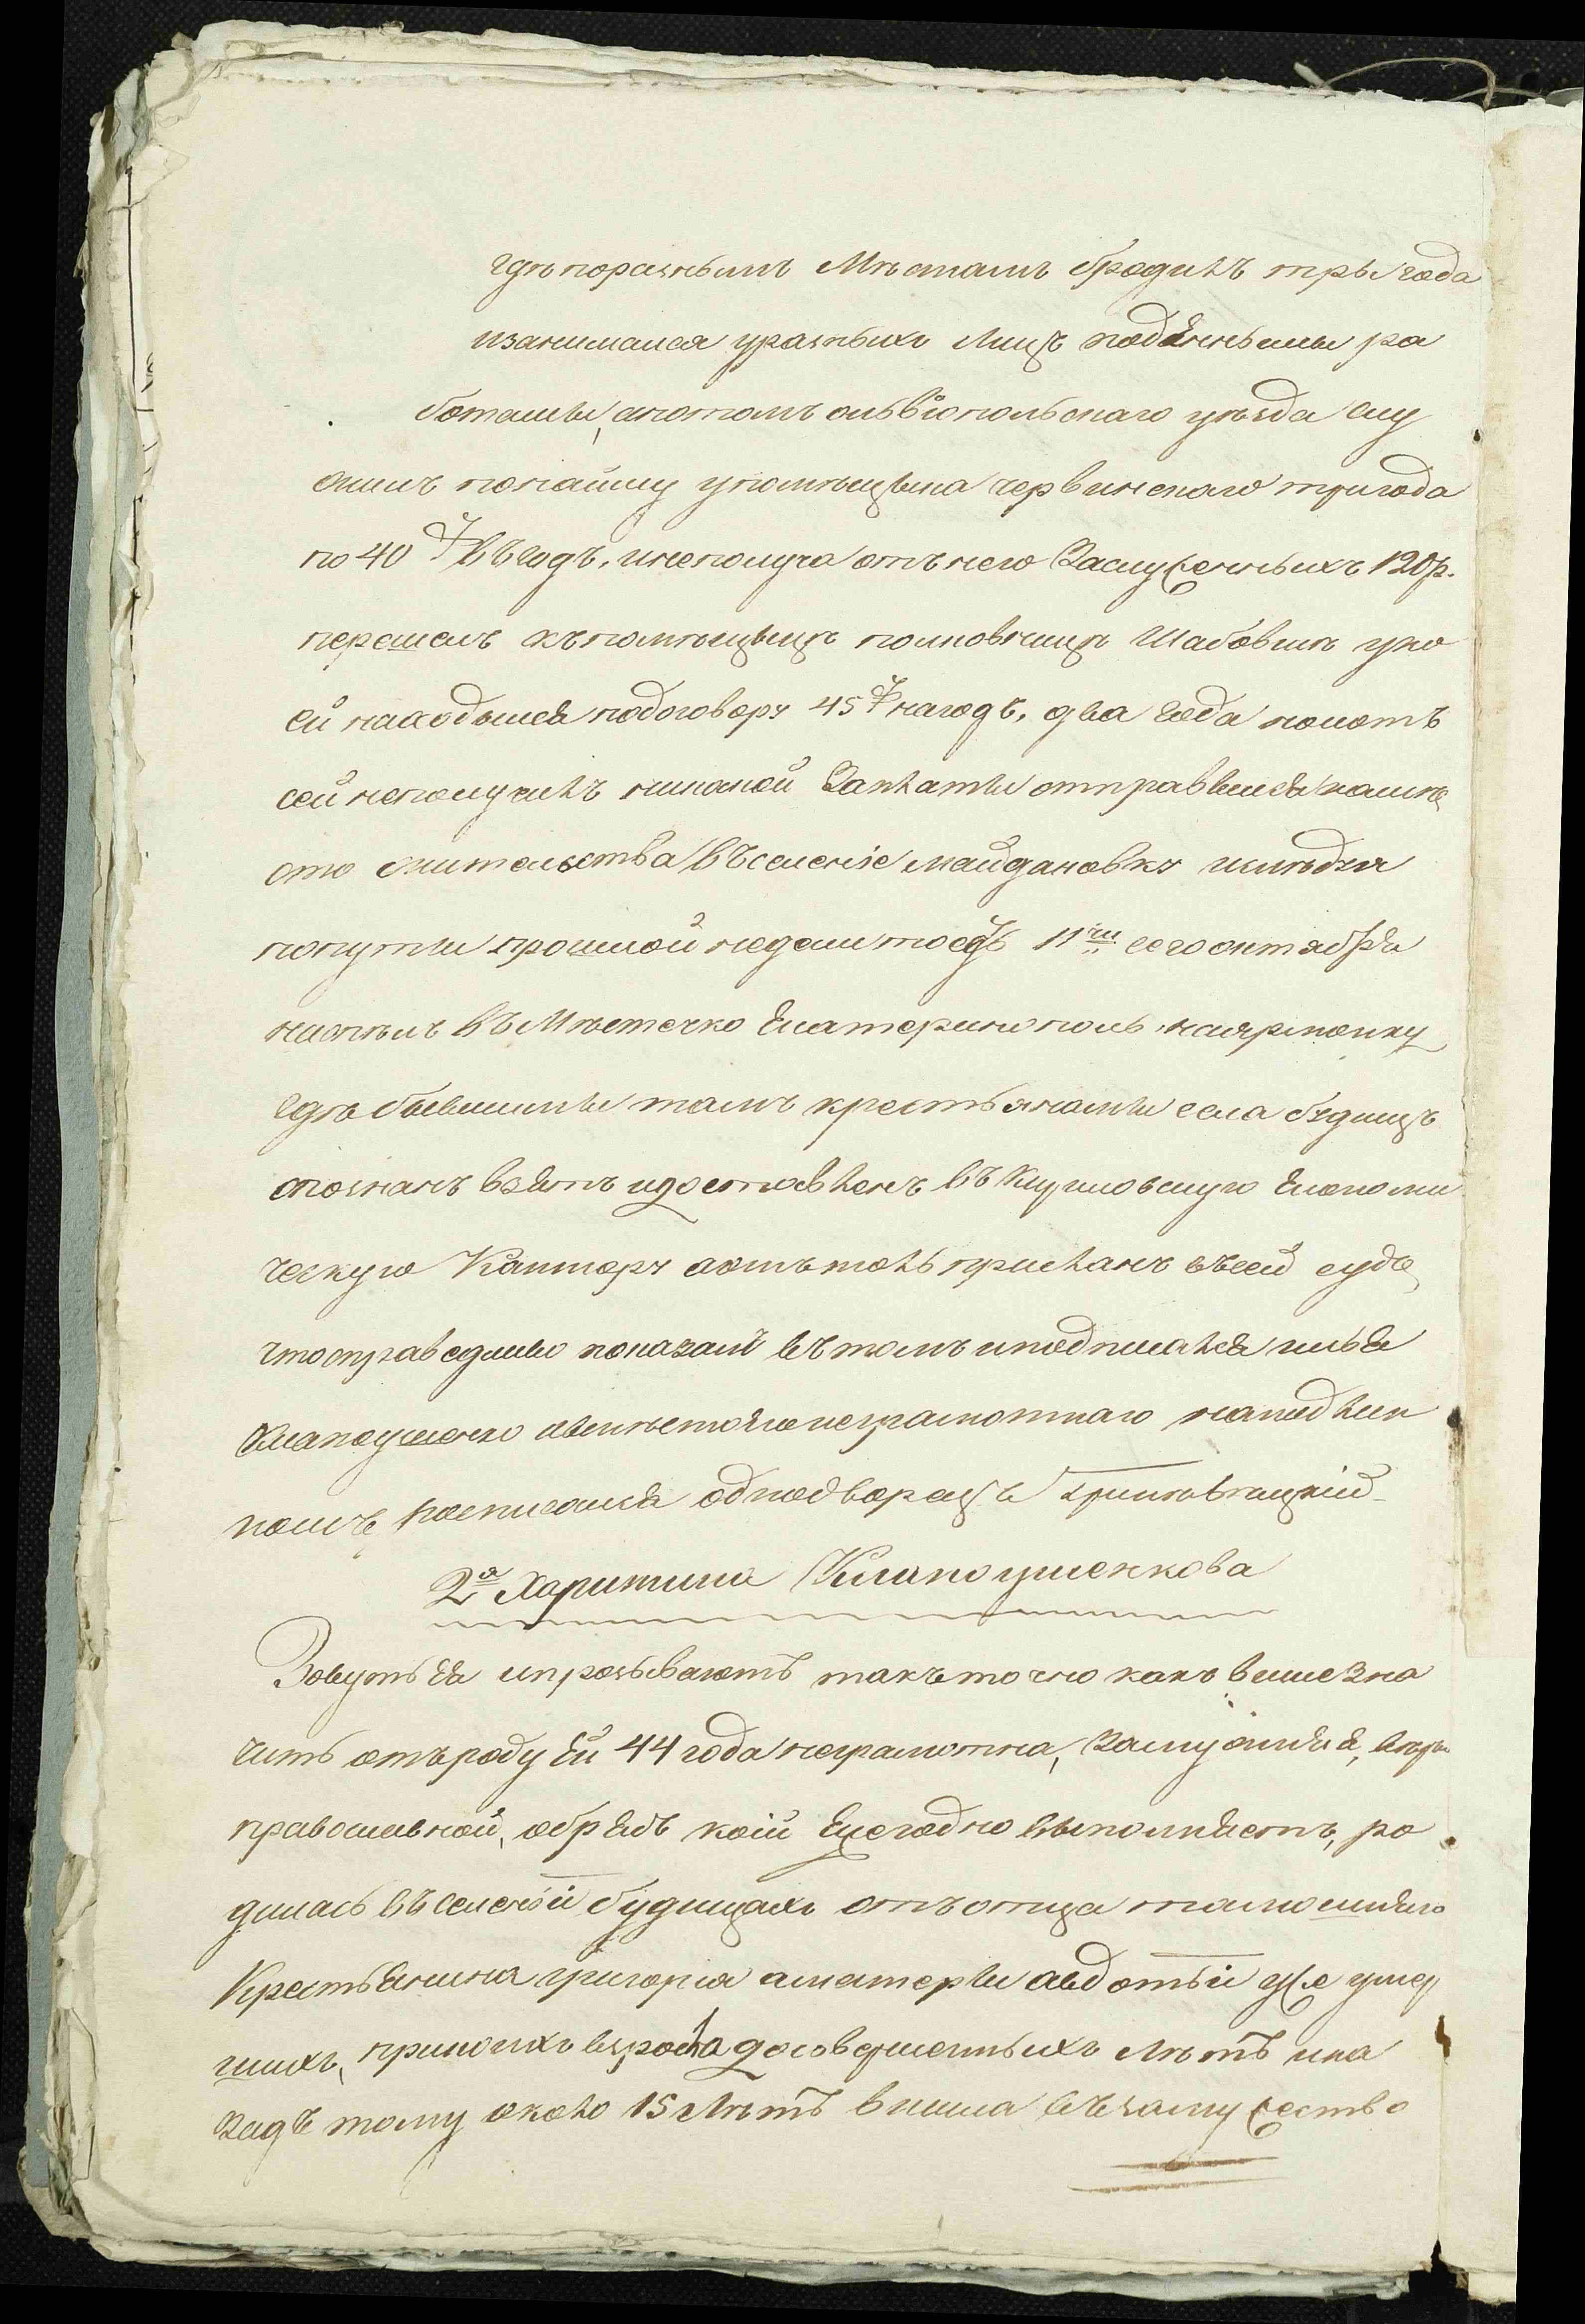 гдѣ поразнымъ Мѣстамъ бродилъ тры года
изанимался уразныхъ Лицъ подённымы ра
ботамы, апотомъ ольвіопольскаго уѣзда слу
жилъ понайму упомѣщыка червинскаго три года
по 40 р въ годъ, инеполуча отънего Заслуженныхъ 120 р.
перешелъ къ помѣщыцѣ полковницѣ Шабовил уко
ей находылся подоговору 45 р нагодъ, два Года но отъ
сей неполучилъ никакой Заплаты отправился намѣ
сто жительства въ селеніе майдановку идучи
попуты прошлой недели тоесть 11 чи. сего октября
въ Мѣстечко Екатеринополь наярмонку
гдѣ бывшимы тамъ крестьянамы села будищъ
опознанъ взятъ идоставленъ въ Кириловскую Економи
ческую Кантору аотътоль присланъ въ сей судъ
что справедливо показалъ въ томъ иподписался илья
Клапоушенко авмѣсто его неграмотнаго
росписался однодворецъ
2я Харитина Клапоушенкова
Зовутъ Ея ипрозываютъ такъ точно какъ выше Зна
чить отъроду Ей 44 года неграмотна, Замужняя, вѣры
православной, обрядъ коій Ежегодно выполняетъ, ро
дилась въ селеніи будищахъ отъ отца тамошняго
Крестьянина григорія аматеры авдотьи уже умер
шихъ, прикоихъ взросла досовершенныхъ Лѣтъ ина
Задъ тому около 15 Лѣтъ вышла въ замужество